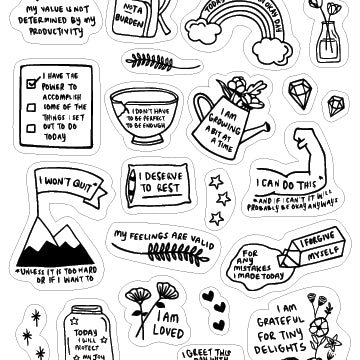 MY VALUE IS NOT
DETERMINED BY MY
PRODUCTIVITY
NOT A
BURDEN
TODAY
OKAY DAY
I HAVE THE
POWER TO
ACCOMPLISH
SOME OF THE
THINGS I SET
OUT TO DO
TODAY
I DON'T HAVE
TO BE PERFECT
TO BE ENOUGH
I AM
GROWING
A BIT AT
A TIME
I CAN DO THIS*
*AND IF I CAN'T IT WILL
PROBABLY BE OKAY ANYWAYS
I WON'T QUIT*
*UNLESS IT IS TOO HARD
OR IF I WANT TO
I DESERVE
TO REST
MY FEELINGS ARE VALID
FOR
ANY
MISTAKES
I MADE TODAY
I FORGIVE
MYSELF
TODAY
I WILL
PROTECT
MY JOY
I AM
LOVED
I GREET THIS
DAY WITH
I AM
GRATEFUL
FOR TINY
DELIGHTS